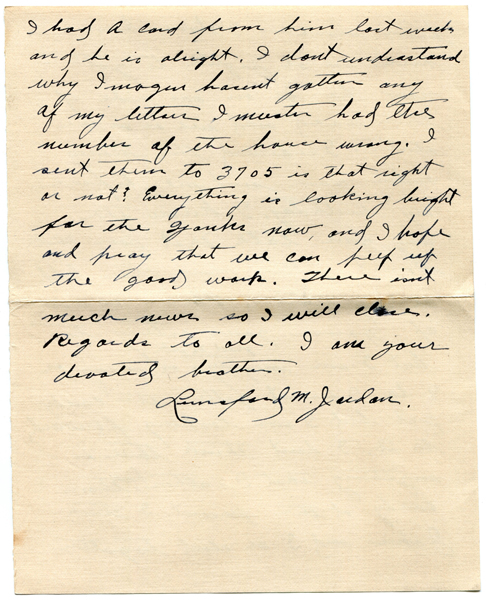 I had a card from him last week
and he is alright. I dont understand
why Imogen havent gotten any
of my letters I muster had the
number of the house wrong. I
sent them to 3705 is that right
or not? Everything is looking bright
for the Yanks now, and I hope
and pray that we can keep up
the good work. There isnt
much news so I will close.
Regards to all. I am your
devoted brother.
Lunsford M. Jordan.